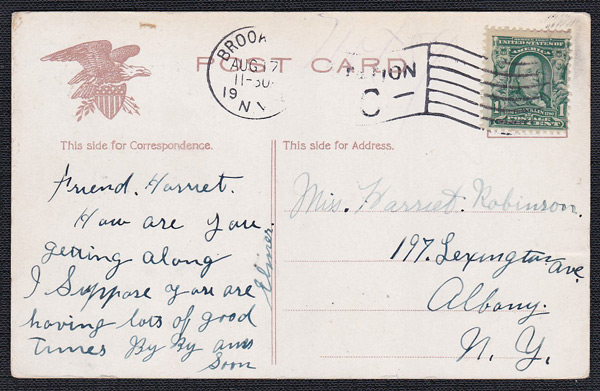 POST CARD
BROOK
AUG 7
11-30
19
N.Y.
TION
C
UNITED STATES OF AMERICA
POSTAGE
This side for Correspondence.
This side for Address.
Friend. Harriet.
How are you
getting along
I Suppose you are
having lots of good
times By By ans
Soon
Elmer.
Miss. Harriet. Robinson.
197. Lexington ave.
Albany.
N. Y.